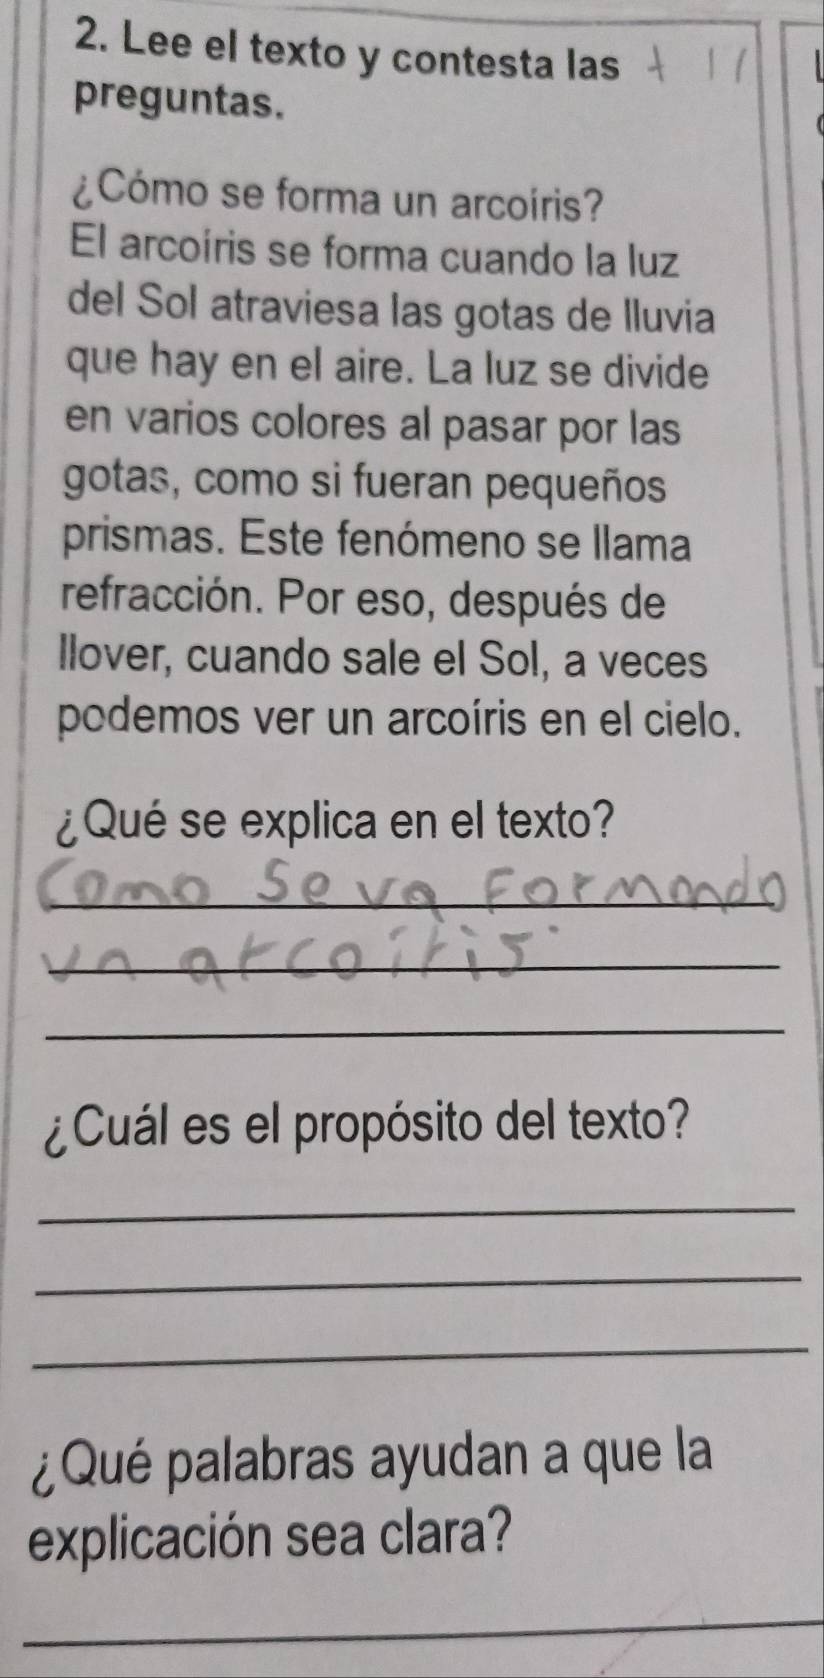 2. Lee el texto y contesta las
preguntas.
¿Cómo se forma un arcoíris?
El arcoíris se forma cuando la luz
del Sol atraviesa las gotas de lluvia
que hay en el aire. La luz se divide
en varios colores al pasar por las
gotas, como si fueran pequeños
prismas. Este fenómeno se llama
refracción. Por eso, después de
llover, cuando sale el Sol, a veces
podemos ver un arcoíris en el cielo.
¿Qué se explica en el texto?
Como se va Formando
un arcoíris.
¿Cuál es el propósito del texto?
¿Qué palabras ayudan a que la
explicación sea clara?